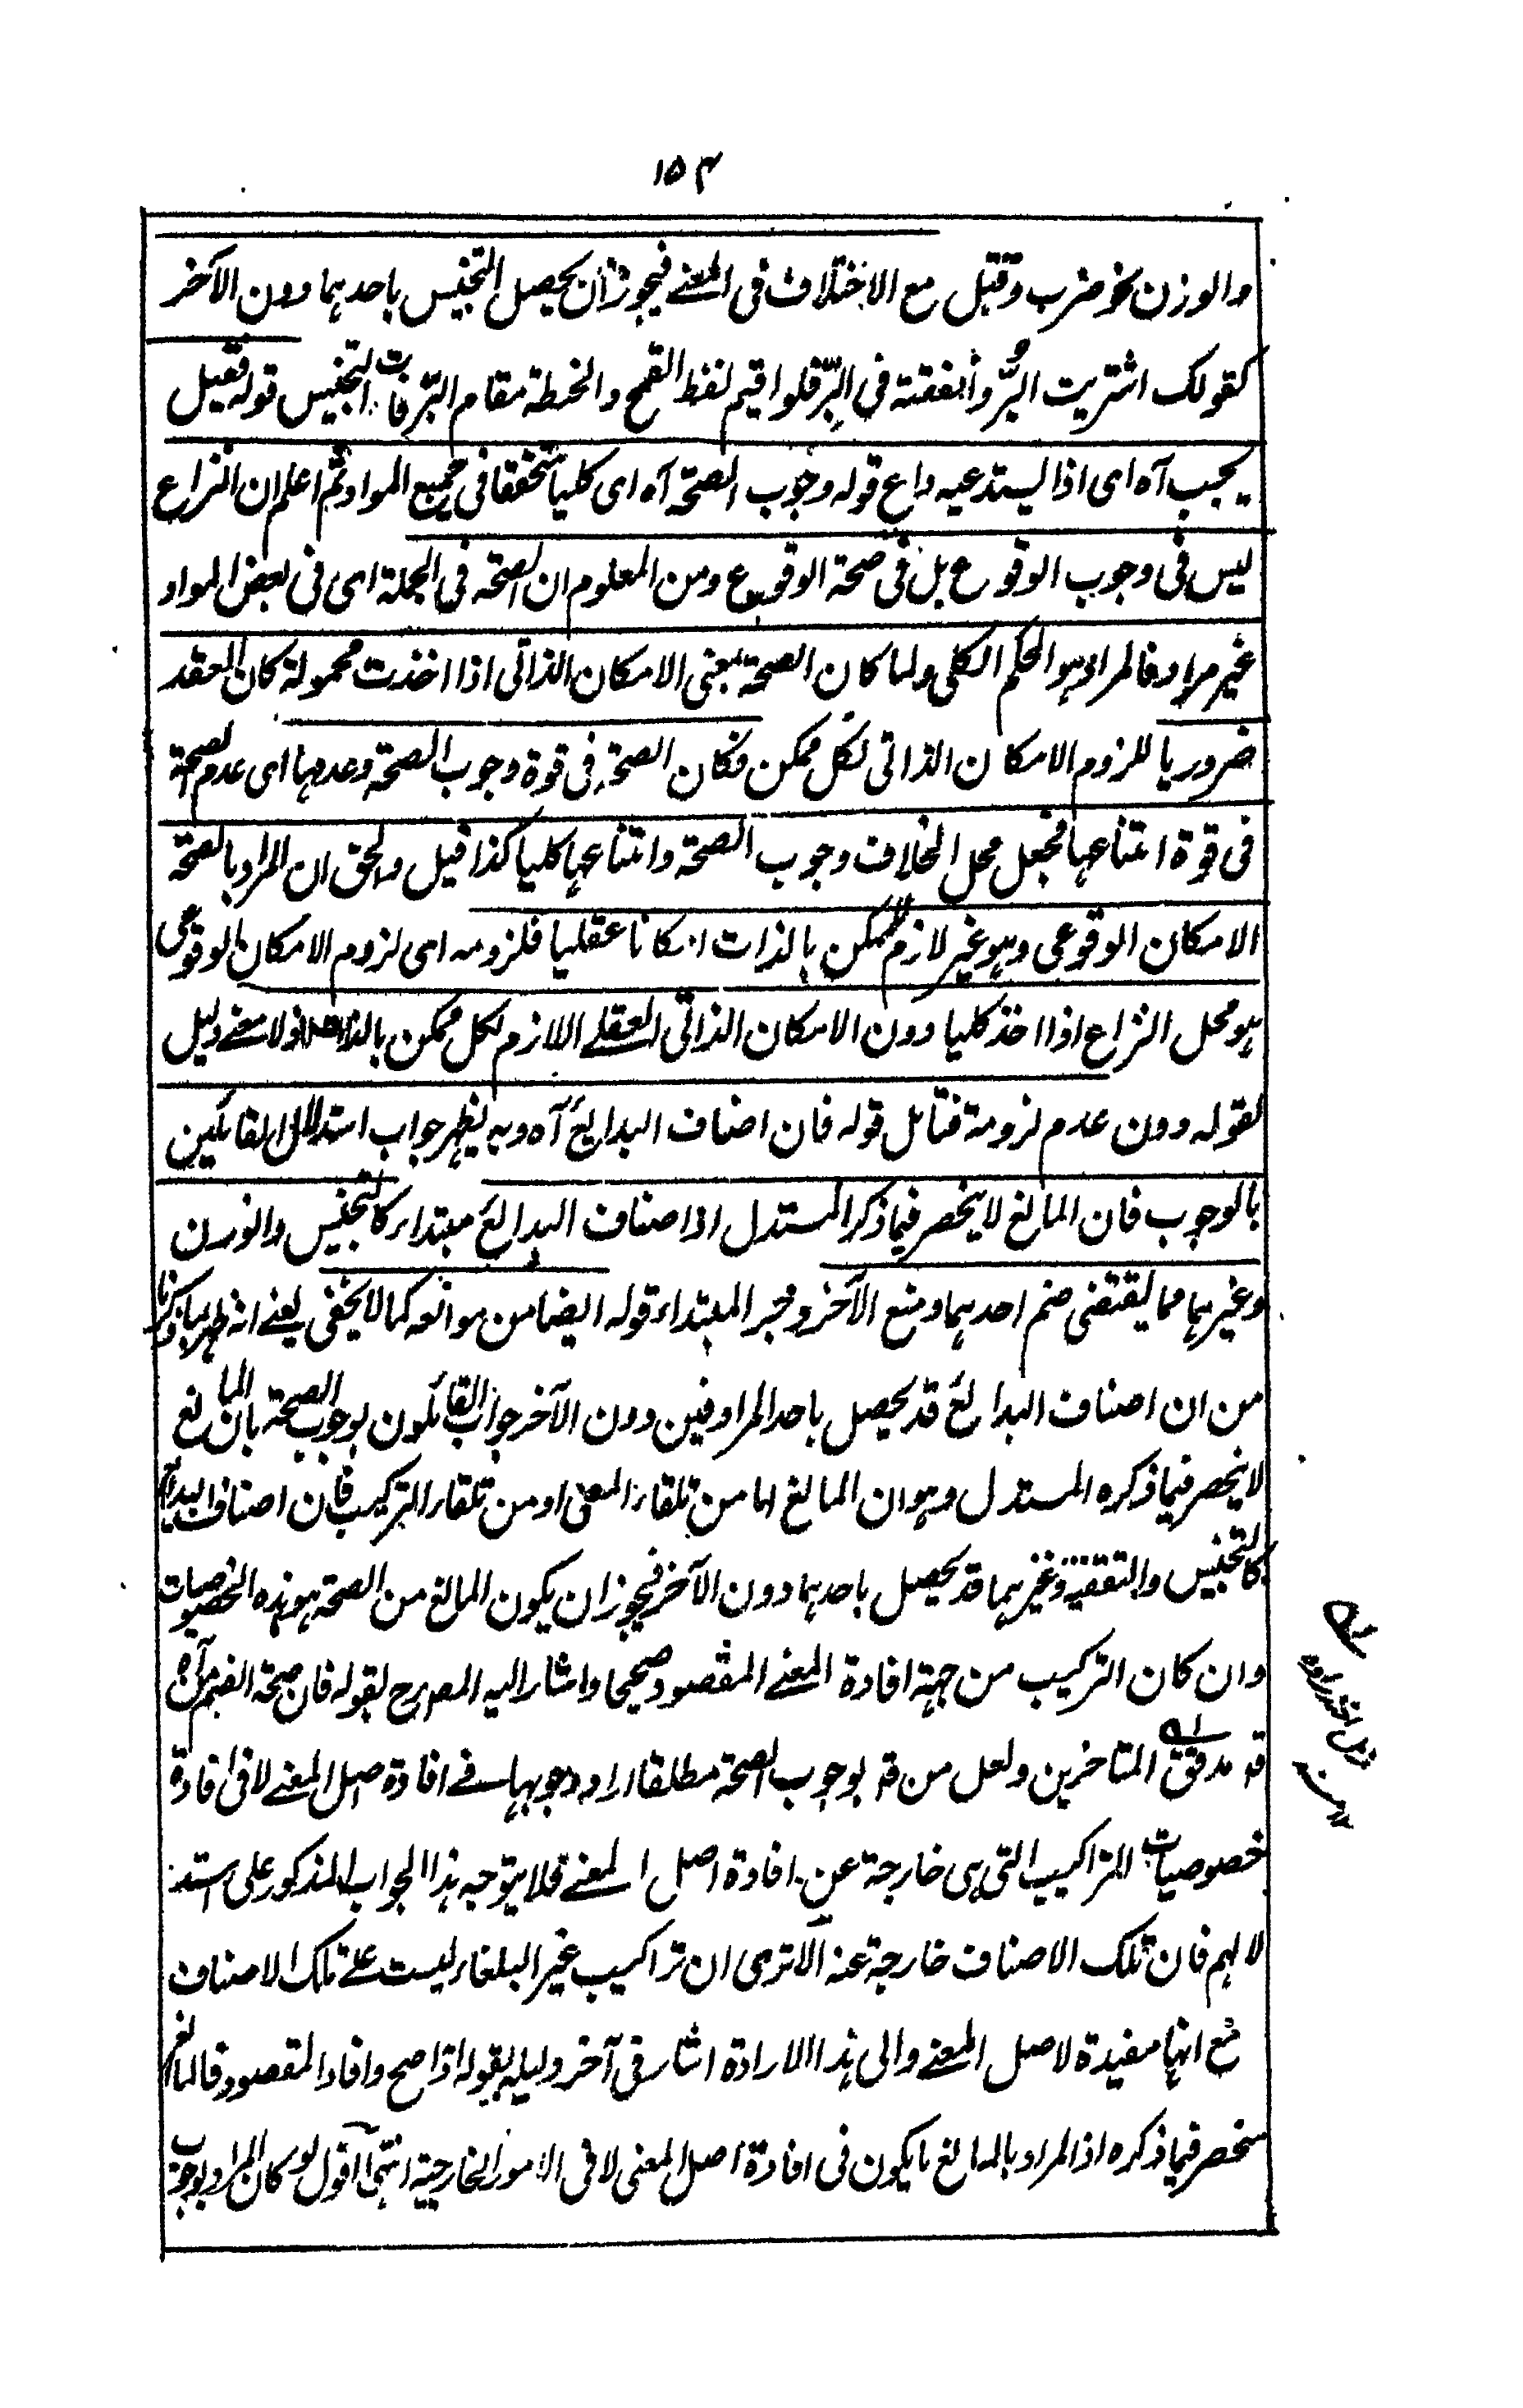 ١٥٤
والوزن نحو ضرب وقتل مع الاختلاف فى المعنے فيجوز ان يحصل التجنيس باحدهما دون الآخر
كقولك اشتريت البُرّ وأنفقته في البِرّ فلو اقيم لفظ القمح والحنطة مقام البرّ فات التجنيس قوله فقيل
يجب آه اى اذا ليستدعيه داع قوله وجوب الصحة آه اى كليا متحققا فى جميع المواد ثم اعلم ان النزاع
ليس فى وجوب الوقوع بل فى صحة الوقوع ومن المعلوم ان الصحة فى الجملة اى فى بعض المواد
غير مراد فالمراد هو الحكم الكلى ولما كان الصحة بمعنى الامكان الذاتى اذا اخذت محمولة كان العقد
ضروريا للزوم الامكان الذاتى لكل ممكن فكان الصحة فى قوة وجوب الصحة وعدمها اى عدم الصحة
فى قوة امتناعها فجعل محل الخلاف وجوب الصحة وامتناعها كليا كذا قيل والحق ان المراد بالصحة
الامكان الوقوعى وهو غير لازم للممكن بالذات امكانا عقليا فلزومه اى لزوم الامكان الوقوعى
هو محل النزاع اذا اخذ كليا دون الامكان الذاتى العقلے اللازم لكل ممكن بالذات اذ لا معنے دليل
لقوله دون عدم لزومة فتامل قوله فان اصناف البدايع آه وبه يظهر جواب استدلال القائلين
بالوجوب فان المانع لا ينحصر فيما ذكر المستدل اذ اصناف البدائع مبتداء كالتجنيس والوزن
وغيرهما مما يقتضى ضم احدهما ومنع الآخر وخبر المبتداء قوله ايضا من موانعه كما لا يخفى يعنے انه ظهر بما ذكرنا
من ان اصناف البدائع قد يحصل باحد المرادفين دون الآخر جواب القائلون بوجوب الصحة بان المانع
لا ينحصر فيما ذكره المستدل وهو ان المانع اما من تلقاء المعنى او من تلقاء التركيب فان اصناف البدائع
كالتجنيس والتقفية وغيرهما قد يحصل باحدهما دون الآخر فيجوز ان يكون المانع من الصحة هو هذه الخصوصيات
وان كان التركيب من جهة افادة المعنے المقصود صحيحا واشار اليه المصرح بقوله فان صحة الضم آه
قد مدقق المتاخرين ولعل من قد بوجوب الصحة مطلقا اراد وجوبها فے افادة اصل المعنے لا فى افادة
خصوصيات التراكيب التى هى خارجة عن افادة اصل المعنے فلا يتوجه هذا الجواب المذكور على استد
لالهم فان تلك الاصناف خارجة عنه الا ترى ان تراكيب غير البلغاء ليست علے تلك الاصناف
مع انها مفيدة لاصل المعنے والى هذا الارادة اشار فى آخر دليله بقوله اذا صح وافاد المقصود فالمانع
منحصر فيما ذكره اذ المراد بالمانع ما يكون فى افادة اصل المعنى لا فى الامور الخارجية انتهى اقول لو كان المراد بوجوب